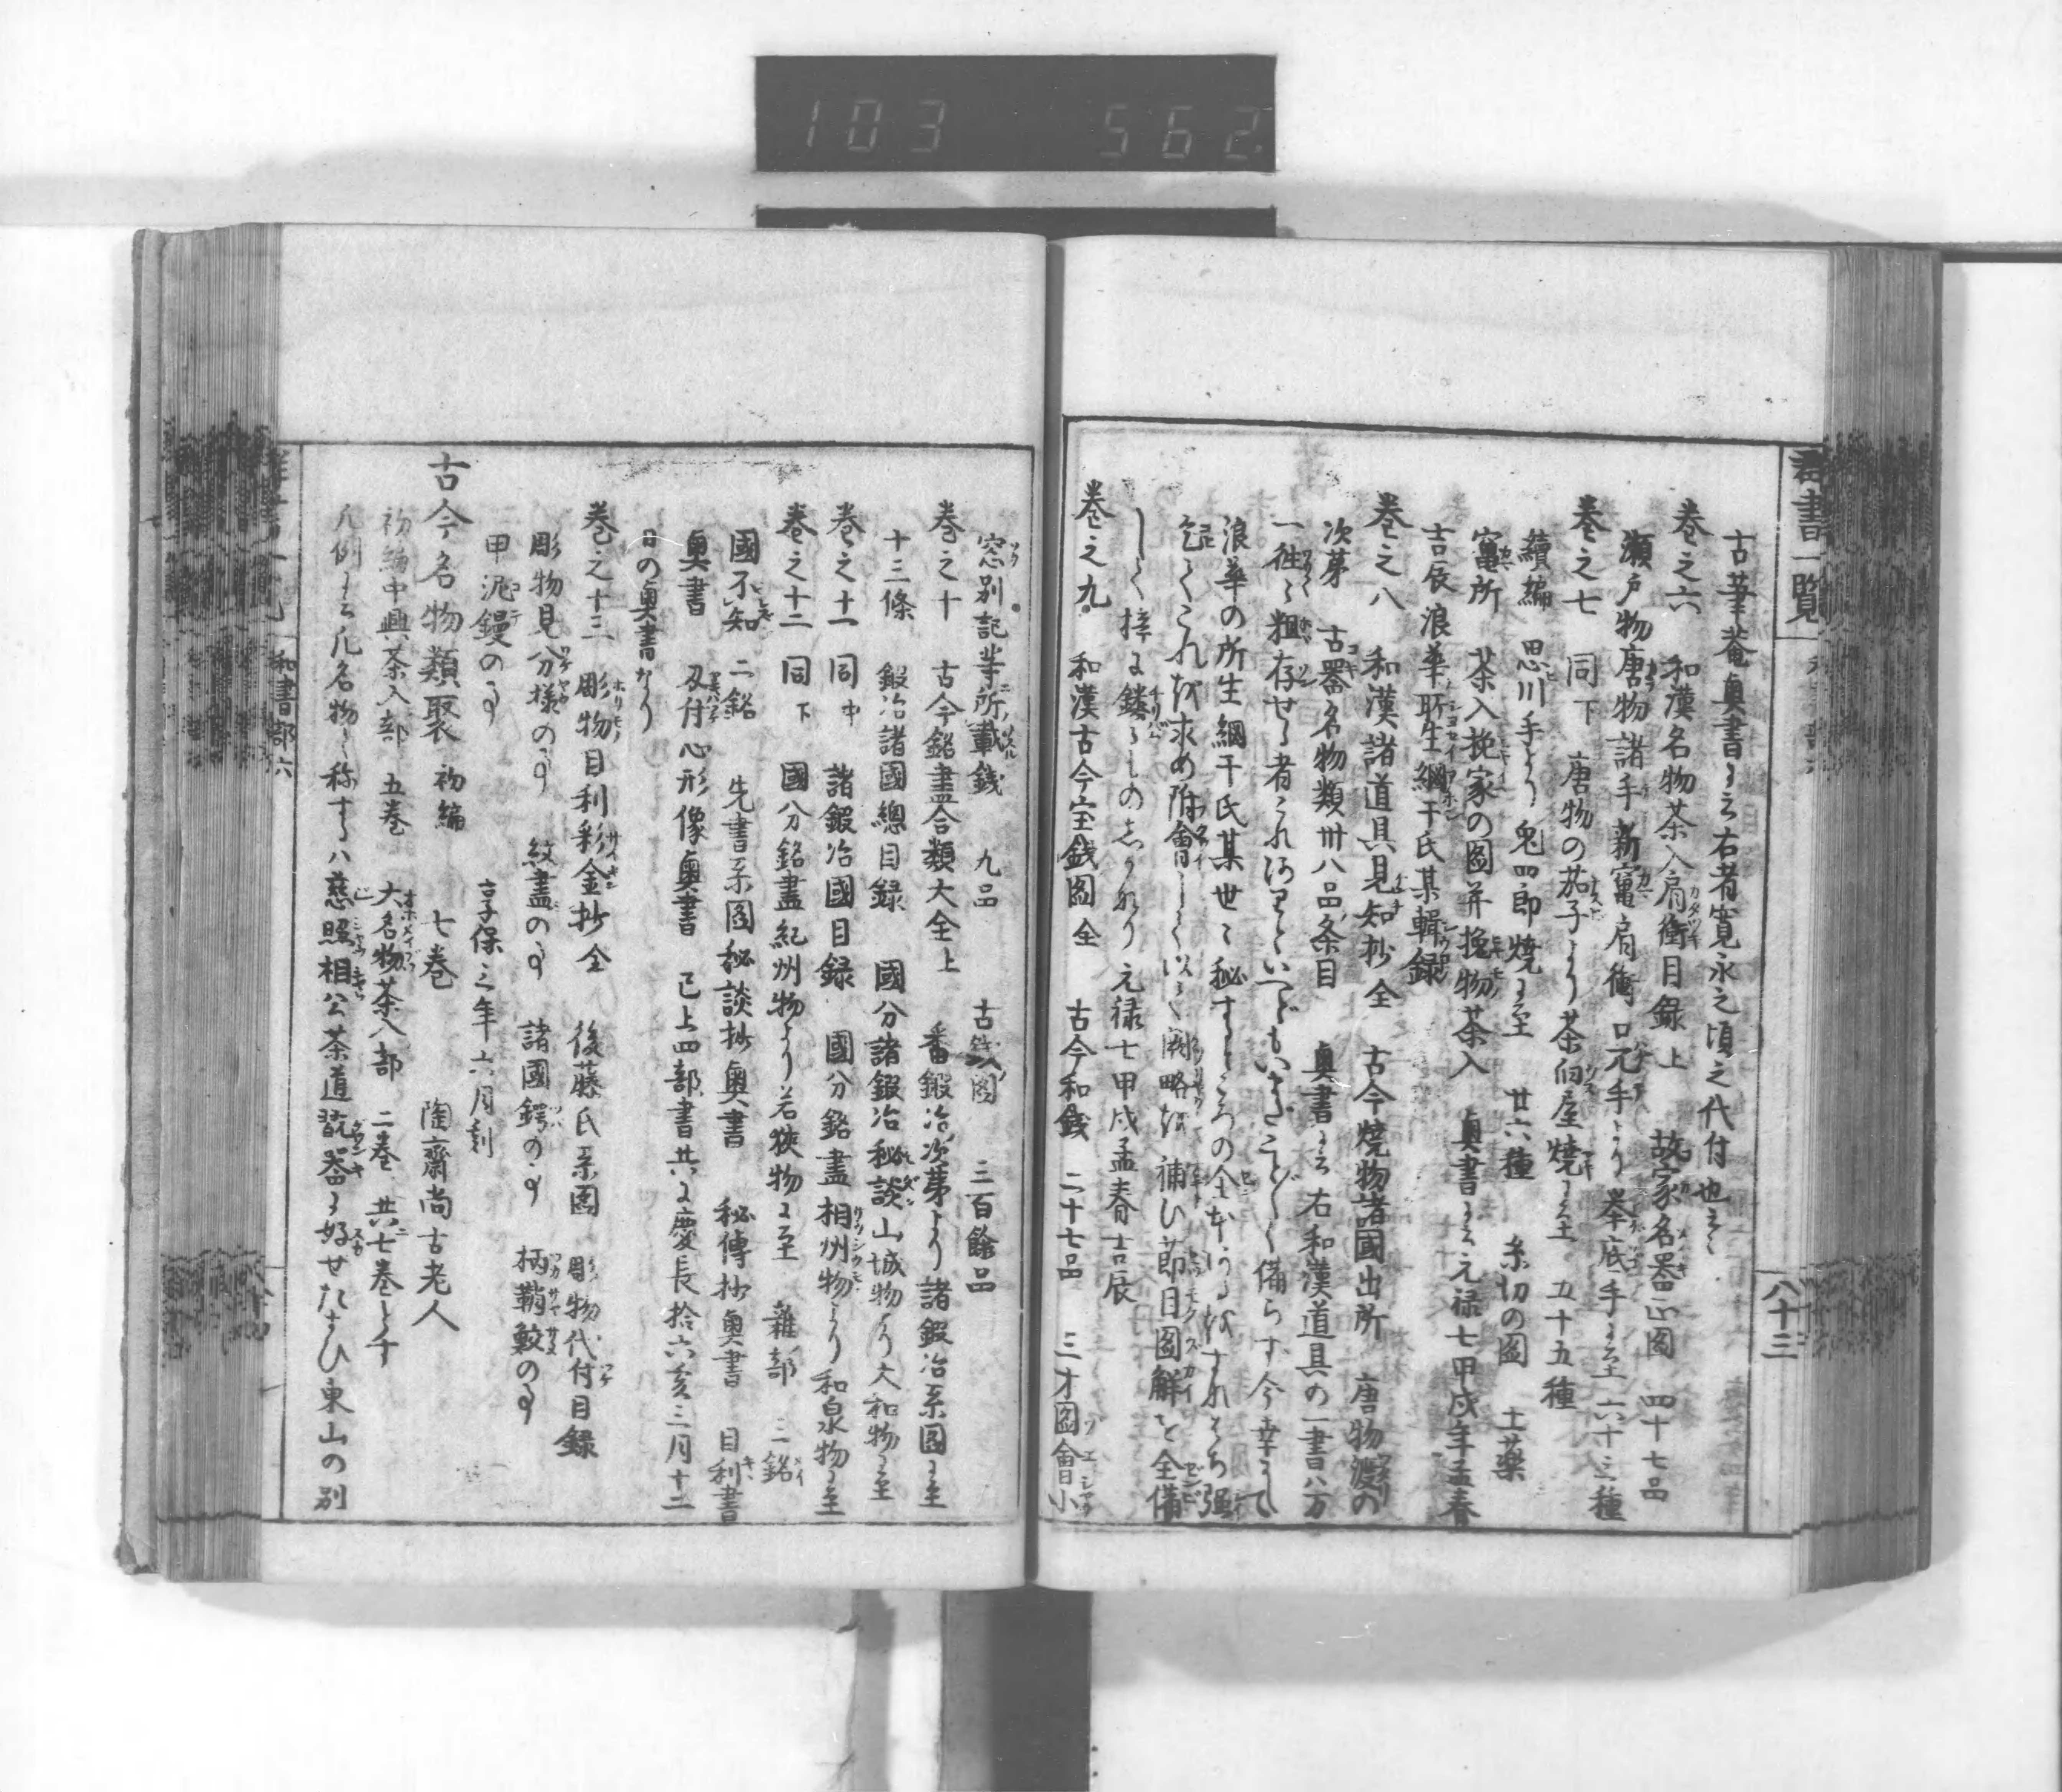 103 562
群書一覧
八十三
古筆菴奥書ニ云右者寛永之頃之代付也云々
巻之六 和漢名物茶入肩衝目録上 故家名器正図 四十七品
瀬戸物唐物諸手 新竃肩衝 口元手より 挙底手ニ至 六十三種
巻之七 同下 唐物の茄子より茶臼屋焼ニ至 五十五種
續編 思川手より 鬼四郎焼ニ至 廿六種 糸切の圖 土薬
竃所 茶入挽家の圖并挽物茶入 奥書ニ云元禄七甲戌年孟春
吉辰浪華所生綱干氏某輯録
巻之八 和漢諸道具見知抄全 古今焼物諸國出所 唐物渡の
次第 古器名物類卅八品条目 奥書ニ云右和漢道具の一書八方
一徃々粗存せる者これ有りといへどもいまだことごとく備らず今幸にして
浪華の所生綱干氏某世々秘するところの全本あるをすなはち強
乞てこれを求め附會して以て闕略を補ひ節目圖解を全備
して梓に鏤るものしかり元禄七甲戌孟春吉辰
巻之九 和漢古今宝銭圖全 古今和銭 二十七品 三才圖會小
窓別記等所載銭 九品 古銭圖 三百餘品
巻之十 古今銘盡合類大全上 番鍛冶次第より諸鍛冶系圖ニ至
十三條 鍛冶諸國總目録 國分諸鍛冶秘談山城物より大和物ニ至
巻之十一 同中 諸鍛冶國目録 國分銘盡相州物より和泉物ニ至
巻之十二 同下 國分銘盡紀州物より若狭物ニ至 雜部 二銘
國不知 二銘 先書系圖秘談抄奥書 秘傳抄奥書 目利書
奥書 刄付心形像奥書 已上四部書共ニ慶長拾六亥三月十二
日の奥書なり
巻之十三 彫物目利彩金抄全 後藤氏系圖 彫物代付目録
彫物見分様の事 紋盡の事 諸國鍔の事 柄鞘鮫の事
甲泥鏝の事 享保三年六月刻
古今名物類聚 初編 七巻 陶齋尚古老人
初編中興茶入部 五巻 大名物茶入部 二巻 共ニ七巻とす
凡例ニ云凡名物と称するハ慈照相公茶道翫器に好せたまひ東山の別
和書部六